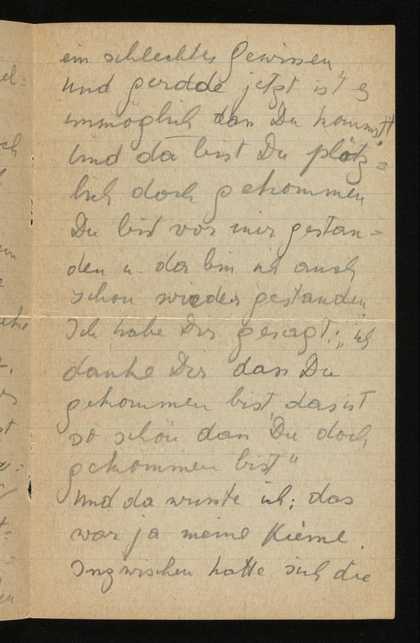 ein schlechtes Gewissen
und gerade jetzt ist es
unmöglich dan Du kommst
Und da bist Du plötz=
lich doch gekommen
Du bist vor mir gestan=
den u. da bin ich auch
schon wieder gestanden
Ich habe Dir gesagt: „ich
danke Dir dan Du
gekommen bist, das ist
so schön dan Du doch
gekommen bist"
Und da wusste ich: das
war ja meine
Inzwischen hatte sich die